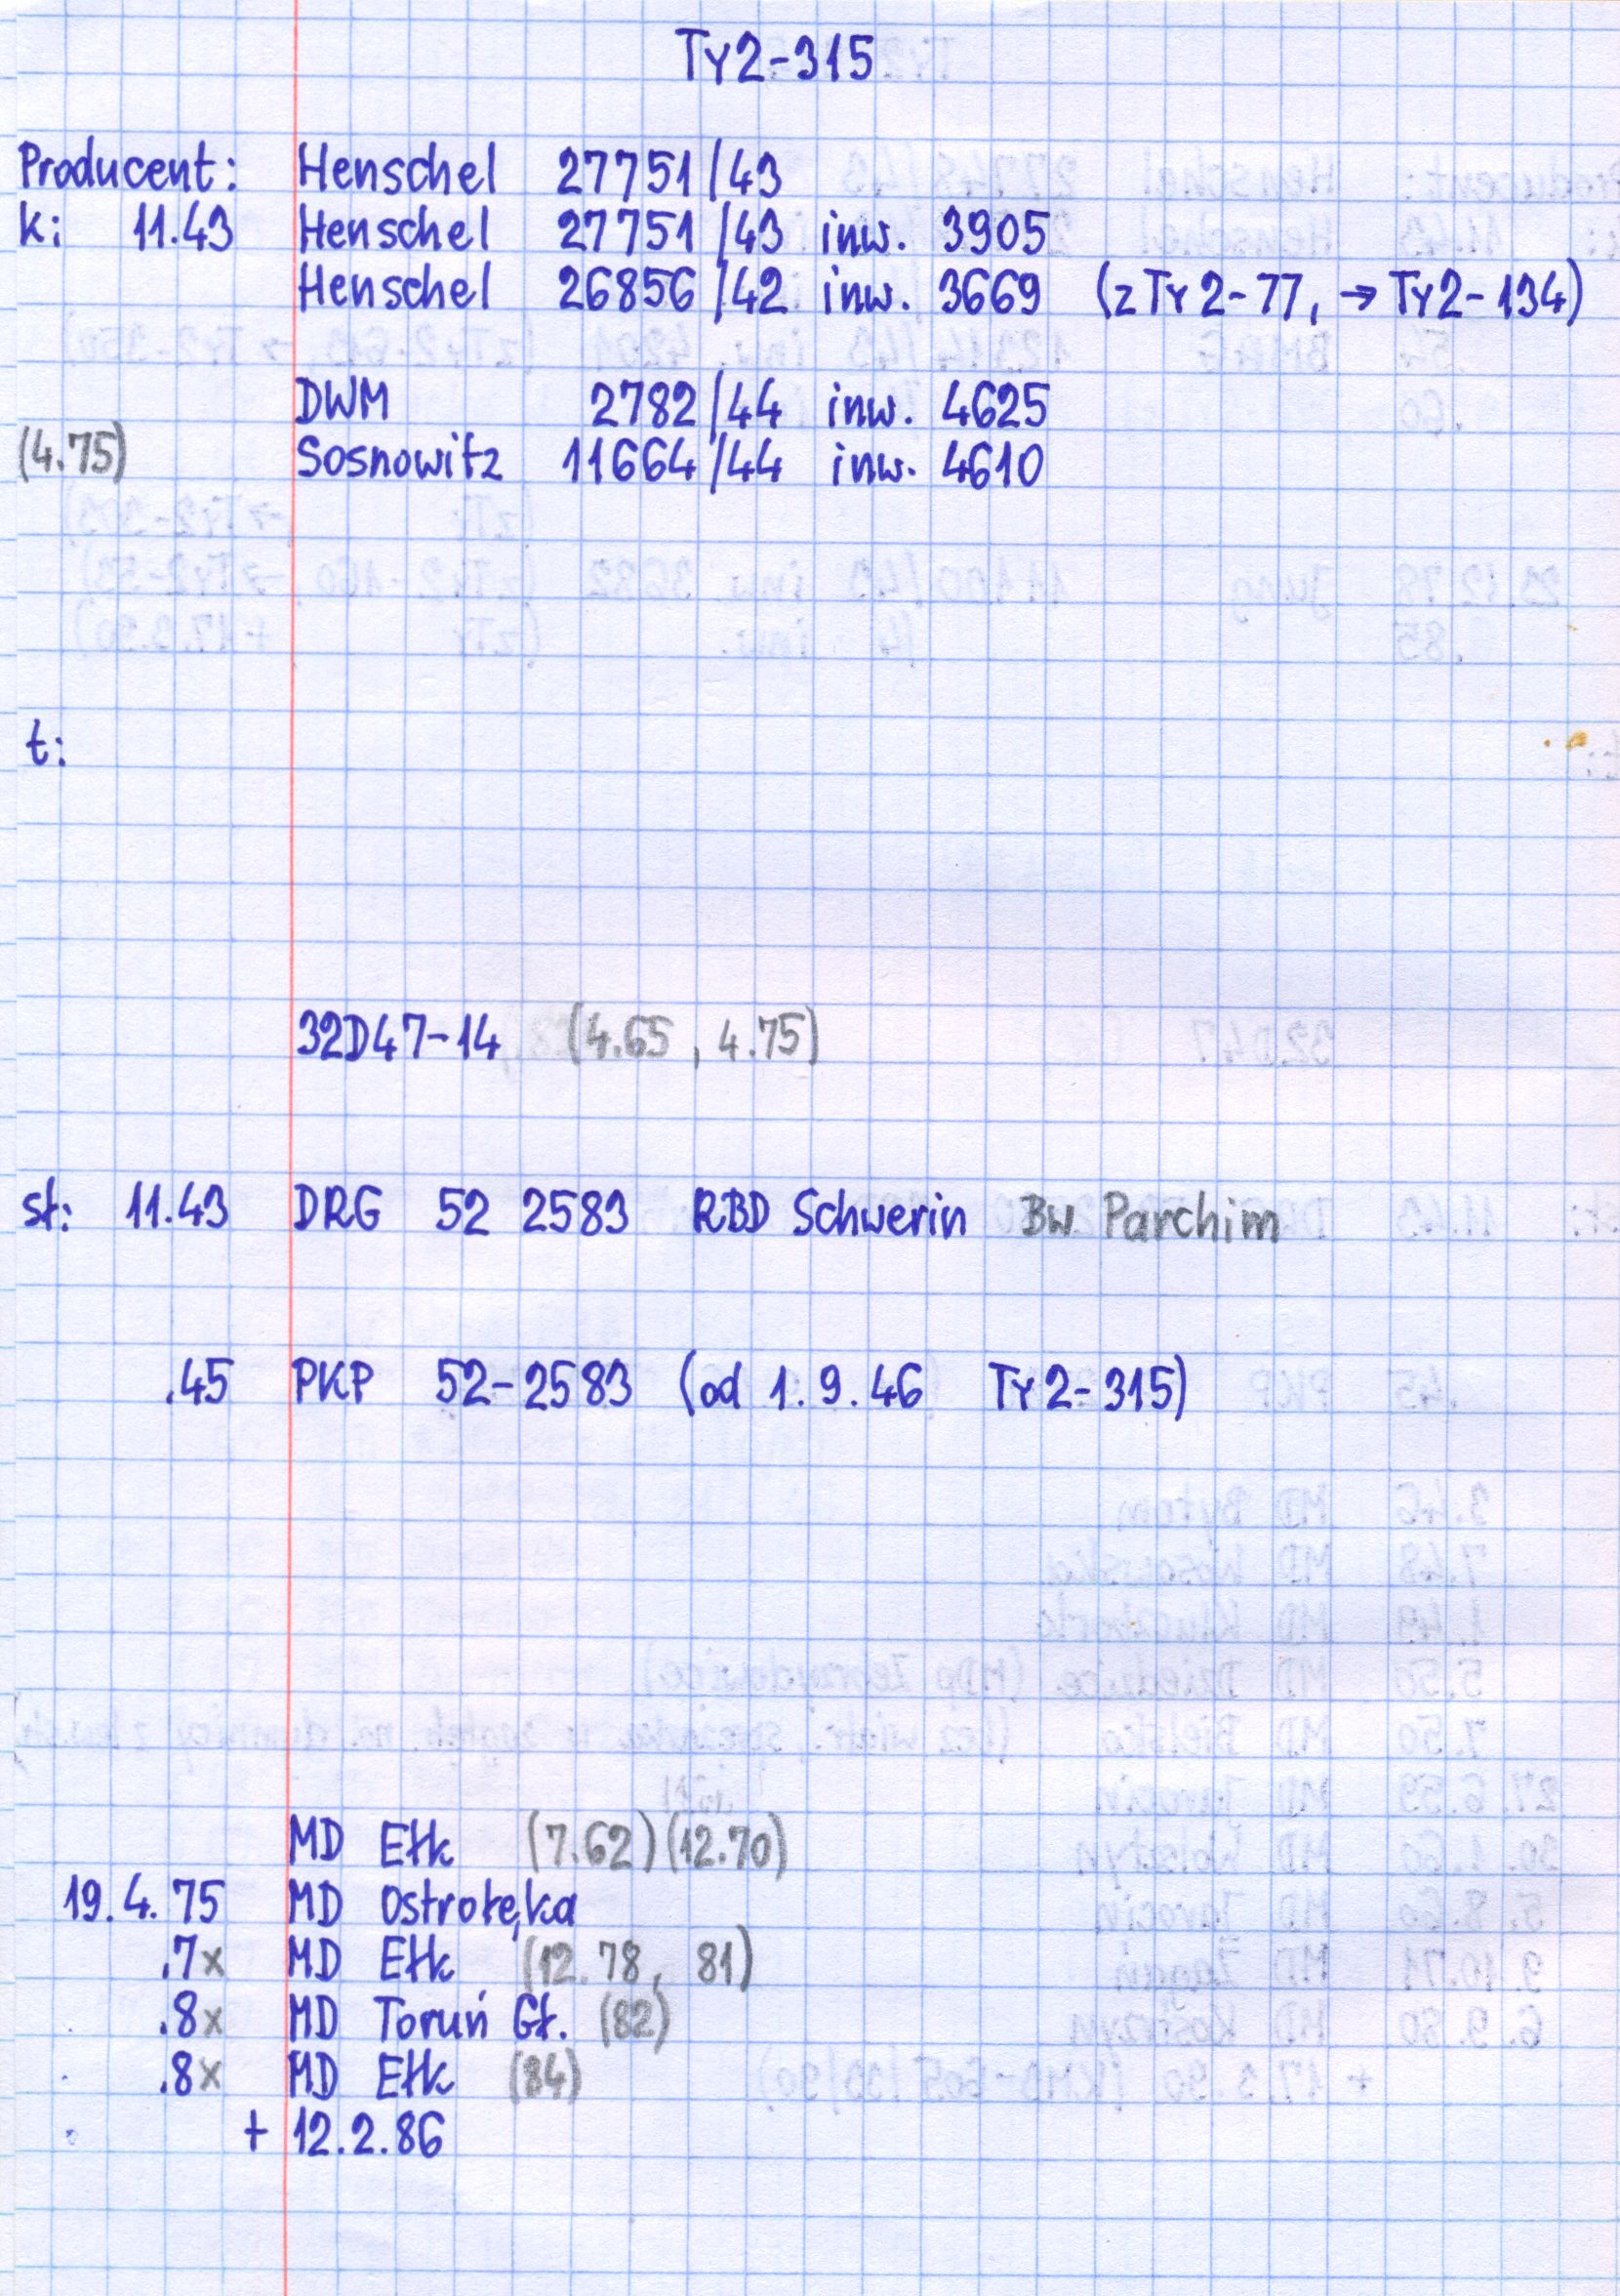 Ty2-315
Producent: Henschel 27751/43
k: 11.43 Henschel 27751/43 inw. 3905
Henschel 26856/42 inw. 3669 (z Ty2-77, → Ty2-134)
DWM 2782/44 inw. 4625
(4.75) Sosnowitz 11664/44 inw. 4610
t:
32D47-14 (4.65, 4.75)
st: 11.43 DRG 52 2583 RBD Schwerin Bw Parchim
.45 PKP 52-2583 (od 1.9.46 Ty2-315)
MD Ełk (7.62) (12.70)
19.4.75 MD Ostrołęka
.7x MD Ełk (12.78, 81)
.8x MD Toruń Gł. (82)
.8x MD Ełk (84)
+ 12.2.86